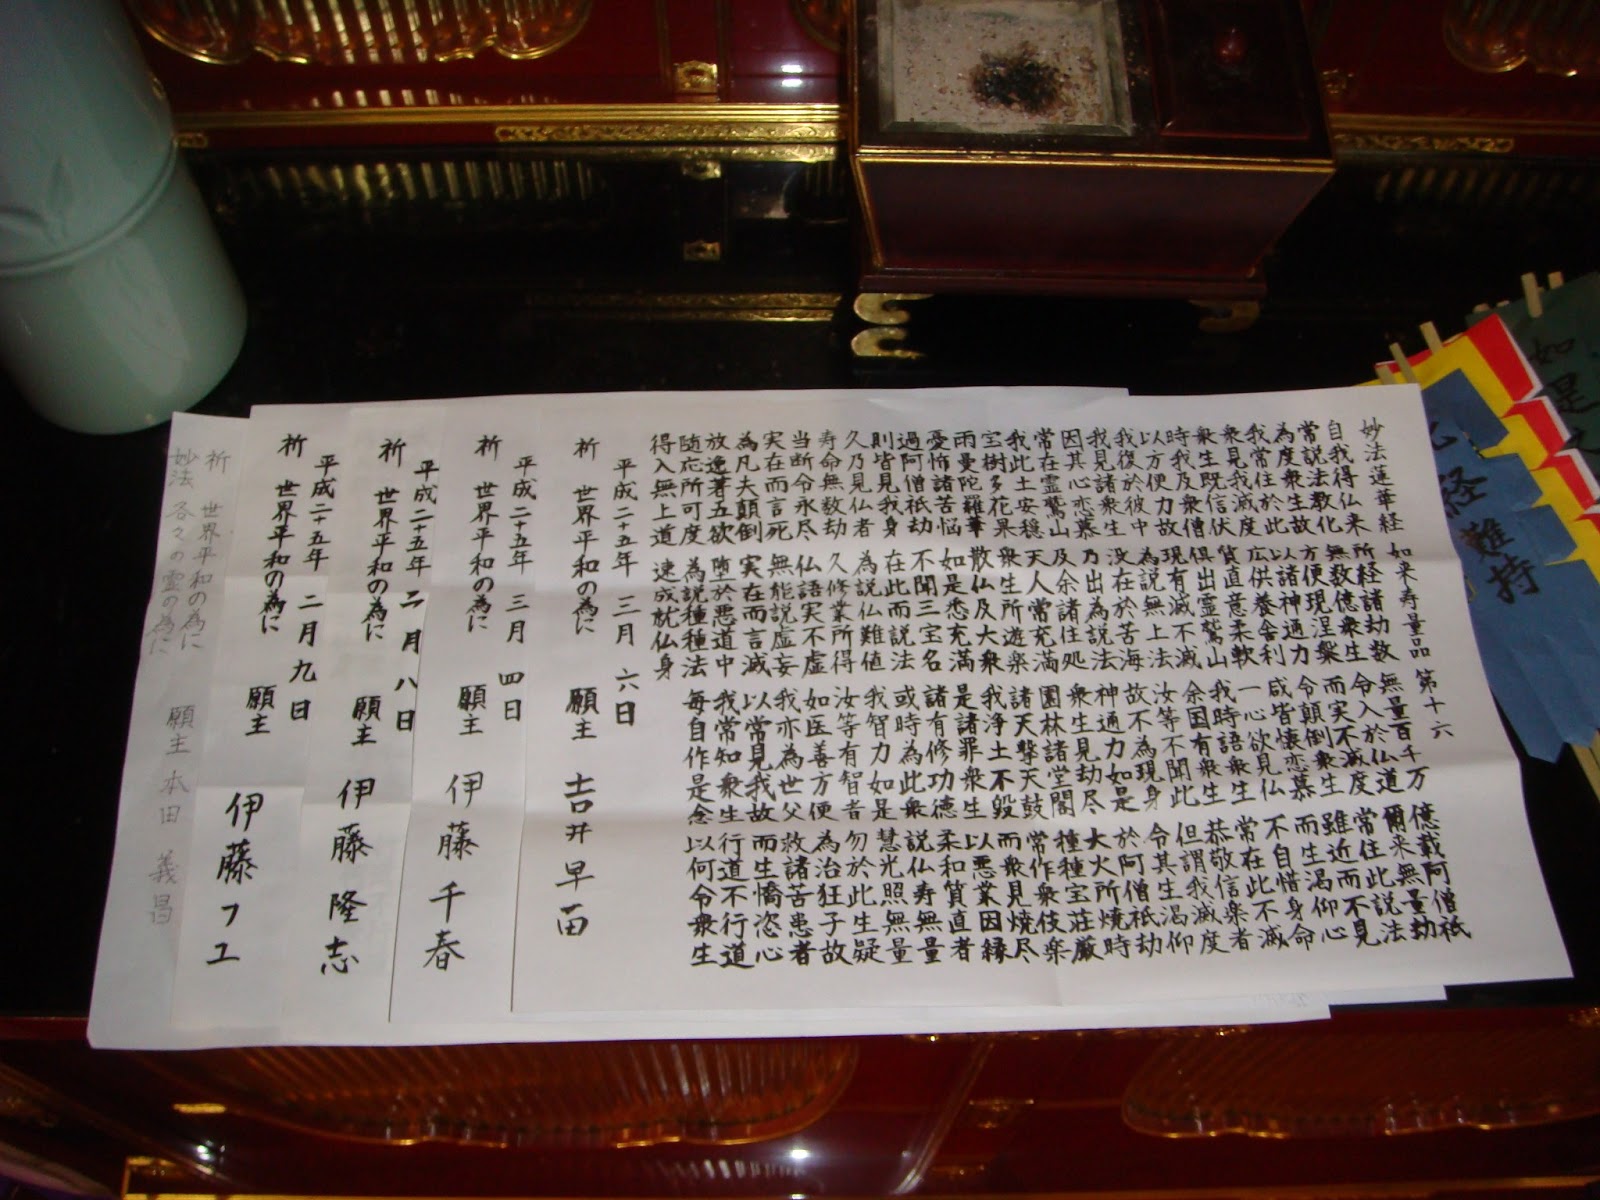 妙法蓮華経 如来寿量品 第十六
自我得仏来 所経諸劫数 無量百千万 億載阿僧祇
常説法教化 無数億衆生 令入於仏道 爾来無量劫
為度衆生故 方便現涅槃 而実不滅度 常住此説法
我常住於此 以諸神通力 令顛倒衆生 雖近而不見
衆見我滅度 広供養舎利 咸皆懐恋慕 而生渇仰心
衆生既信伏 質直意柔軟 一心欲見仏 不自惜身命
時我及衆僧 倶出霊鷲山 我時語衆生 常在此不滅
以方便力故 現有滅不滅 余国有衆生 恭敬信楽者
我復於彼中 為説無上法 汝等不聞此 但謂我滅度
我見諸衆生 没在於苦海 故不為現身 令其生渇仰
因其心恋慕 乃出為説法 神通力如是 於阿僧祇劫
常在霊鷲山 及余諸住処 衆生見劫尽 大火所焼時
我此土安穏 天人常充満 園林諸堂閣 種種宝荘厳
宝樹多花果 衆生所遊楽 諸天撃天鼓 常作衆伎楽
雨曼陀羅華 散仏及大衆 我浄土不毀 而衆見焼尽
憂怖諸苦悩 如是悉充満 是諸罪衆生 以悪業因縁
過阿僧祇劫 不聞三宝名 諸有修功徳 柔和質直者
則皆見我身 在此而説法 或時為此衆 説仏寿無量
久乃見仏者 為説仏難値 我智力如是 慧光照無量
寿命無数劫 久修業所得 汝等有智者 勿於此生疑
当断令永尽 仏語実不虚 如医善方便 為治狂子故
実在而言死 無能説虚妄 我亦為世父 救諸苦患者
為凡夫顛倒 実在而言滅 以常見我故 而生憍恣心
放逸著五欲 堕於悪道中 我常知衆生 行道不行道
随応所可度 為説種種法 毎自作是念 以何令衆生
得入無上道 速成就仏身
平成二十五年 三月 六日
祈 世界平和の為に 願主 吉井早苗
平成二十五年 三月 四日
祈 世界平和の為に 願主 伊藤千春
平成二十五年 二月 八日
祈 世界平和の為に 願主 伊藤隆志
平成二十五年 二月 九日
祈 世界平和の為に 願主 伊藤フユ
祈 世界平和の為に
妙法 各々の霊の為に 願主 本田 義昌
経難持
如是